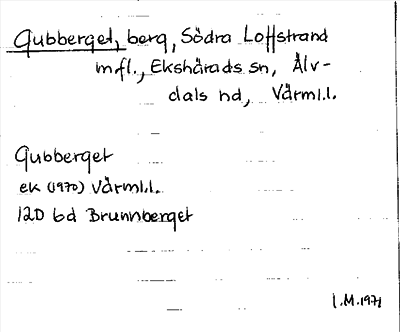 Gubberget, berg, Södra Loffstrand
m.fl., Ekshärads sn, Älv-
dals hd, Värml.l.
Gubberget
ek (1970) Värml.l.
12D 6d Brunnberget
I.M. 1971